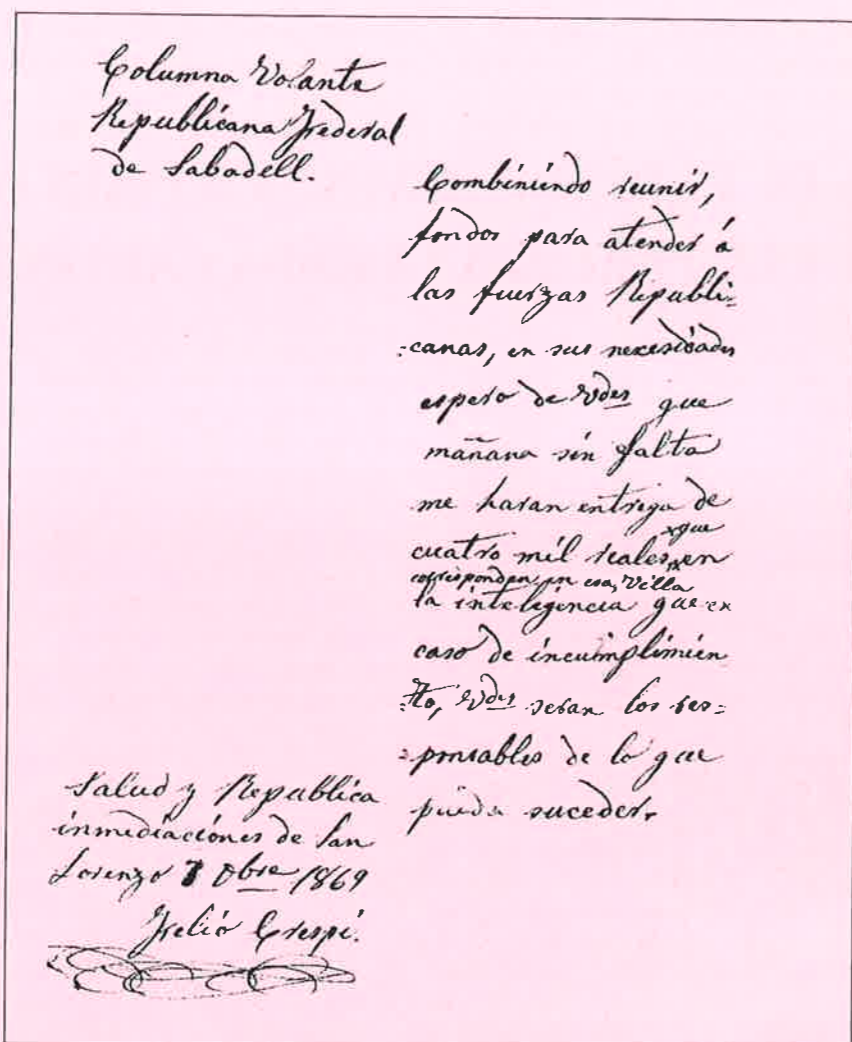 Columna Volante
Republicana Federal
de Sabadell.
Combiniendo reunir,
fondos para atender á
las fuerzas Republi=
=canas, en sus necesidades
espero de Vdes que
mañana sin falta
me haran entrega de
cuatro mil reales, en
que
corresponden en esa, Villa
la inteligencia que en
caso de incumplimien
=to, Vdes seran los res=
=ponsables de lo que
pueda suceder.
Salud y Republica
inmediaciones de San
Lorenzo 7 Obre 1869
Feliò Crespi.